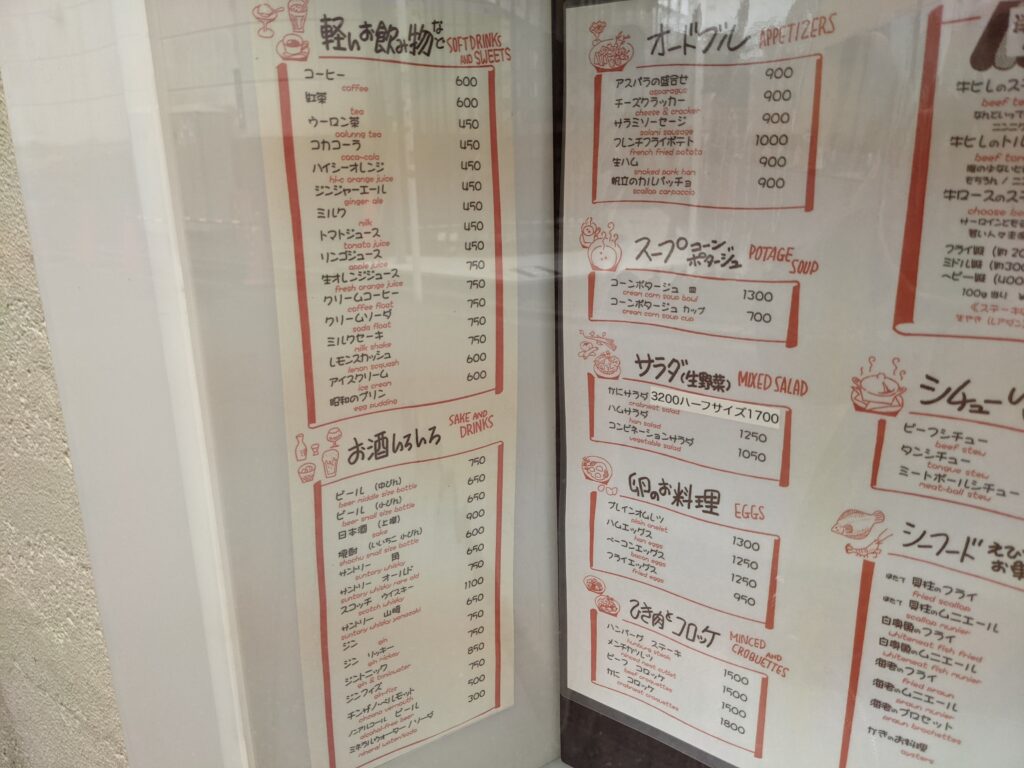 軽いお飲み物など SOFTDRINKS AND SWEETS
コーヒー 600
coffee
紅茶 600
tea
ウーロン茶 450
oolung tea
コカコーラ 450
coca-cola
ハイシーオレンジ 450
hi-c orange juice
ジンジャーエール 450
ginger ale
ミルク 450
milk
トマトジュース 450
tomato juice
リンゴジュース 450
apple juice
生オレンジジュース 750
fresh orange juice
クリームコーヒー 750
coffee float
クリームソーダ 750
soda float
ミルクセーキ 750
milk shake
レモンスカッシュ 750
lemon squash
アイスクリーム 600
ice cream
昭和のプリン 600
egg pudding
お酒いろいろ SAKE AND DRINKS
ビール (中びん) 750
beer middle size bottle
ビール (小びん) 650
beer small size bottle
日本酒 (上撰) 650
sake
焼酎 (いいちこ 小びん) 900
shochu small size bottle
サントリー 角 600
suntory whisky
サントリー オールド 650
suntory whisky rare old
スコッチ ウイスキー 750
scotch whisky
サントリー 山崎 1100
suntory whisky yamazaki
ジン 650
gin
ジン リッキー 750
gin rickey
ジントニック 750
gin & tonicwater
ジンフィズ 850
ginfizz
チンザノ・ベルモット 750
chinzano vermouth
ノンアルコール ビール 500
alcohol-free beer
ミネラルウォーター / ソーダ 300
mineral water/soda
オードブル APPETIZERS
アスパラの盛合せ 900
asparagus
チーズクラッカー 900
cheese & cracker
サラミソーセージ 900
salami sausage
フレンチフライポテト 1000
french fried potato
生ハム 900
smoked pork ham
帆立のカルパッチョ 900
scallop carpaccio
スープ コーンポタージュ POTAGE SOUP
コーンポタージュ 皿 1300
cream corn soup bowl
コーンポタージュ カップ 700
cream corn soup cup
サラダ(生野菜) MIXED SALAD
かにサラダ 3200ハーフサイズ1700
crabmeat salad
ハムサラダ 1250
ham salad
コンビネーションサラダ 1050
vegetable salad
卵のお料理 EGGS
プレインオムレツ 1300
plain omelet
ハムエッグス 1250
ham eggs
ベーコンエッグス 1250
bacon eggs
フライエッグス 950
fried eggs
ひき肉とコロッケ MINCED AND CROQUETTES
ハンバーグ ステーキ 1500
hamburg steak
メンチカツレツ 1500
minced meat cutlet
ビーフ コロッケ 1500
beef croquettes
かに コロッケ 1800
crabmeat croquettes
牛ヒレのス
beef te
なんといって
牛ヒレのトル
beef to
牛ロースのス
choose be
サーロインとも
若い人々
フライ級 (約 20
ミドル級 (約300
ヘビー級 (400
100g当り ¥
シチュー
ビーフシチュー
beef stew
タンシチュー
tongue stew
ミートボールシチュー
meat-ball stew
シーフード えび
お魚
ほたて 貝柱のフライ
fried scallop
ほたて 貝柱のムニエール
scallop munier
白身魚のフライ
whitemeat fish fried
白身魚のムニエール
whitemeat fish munier
海老のフライ
fried prawn
海老のムニエール
prawn munier
海老のブロセット
prawn brochettes
かきのお料理
oysters